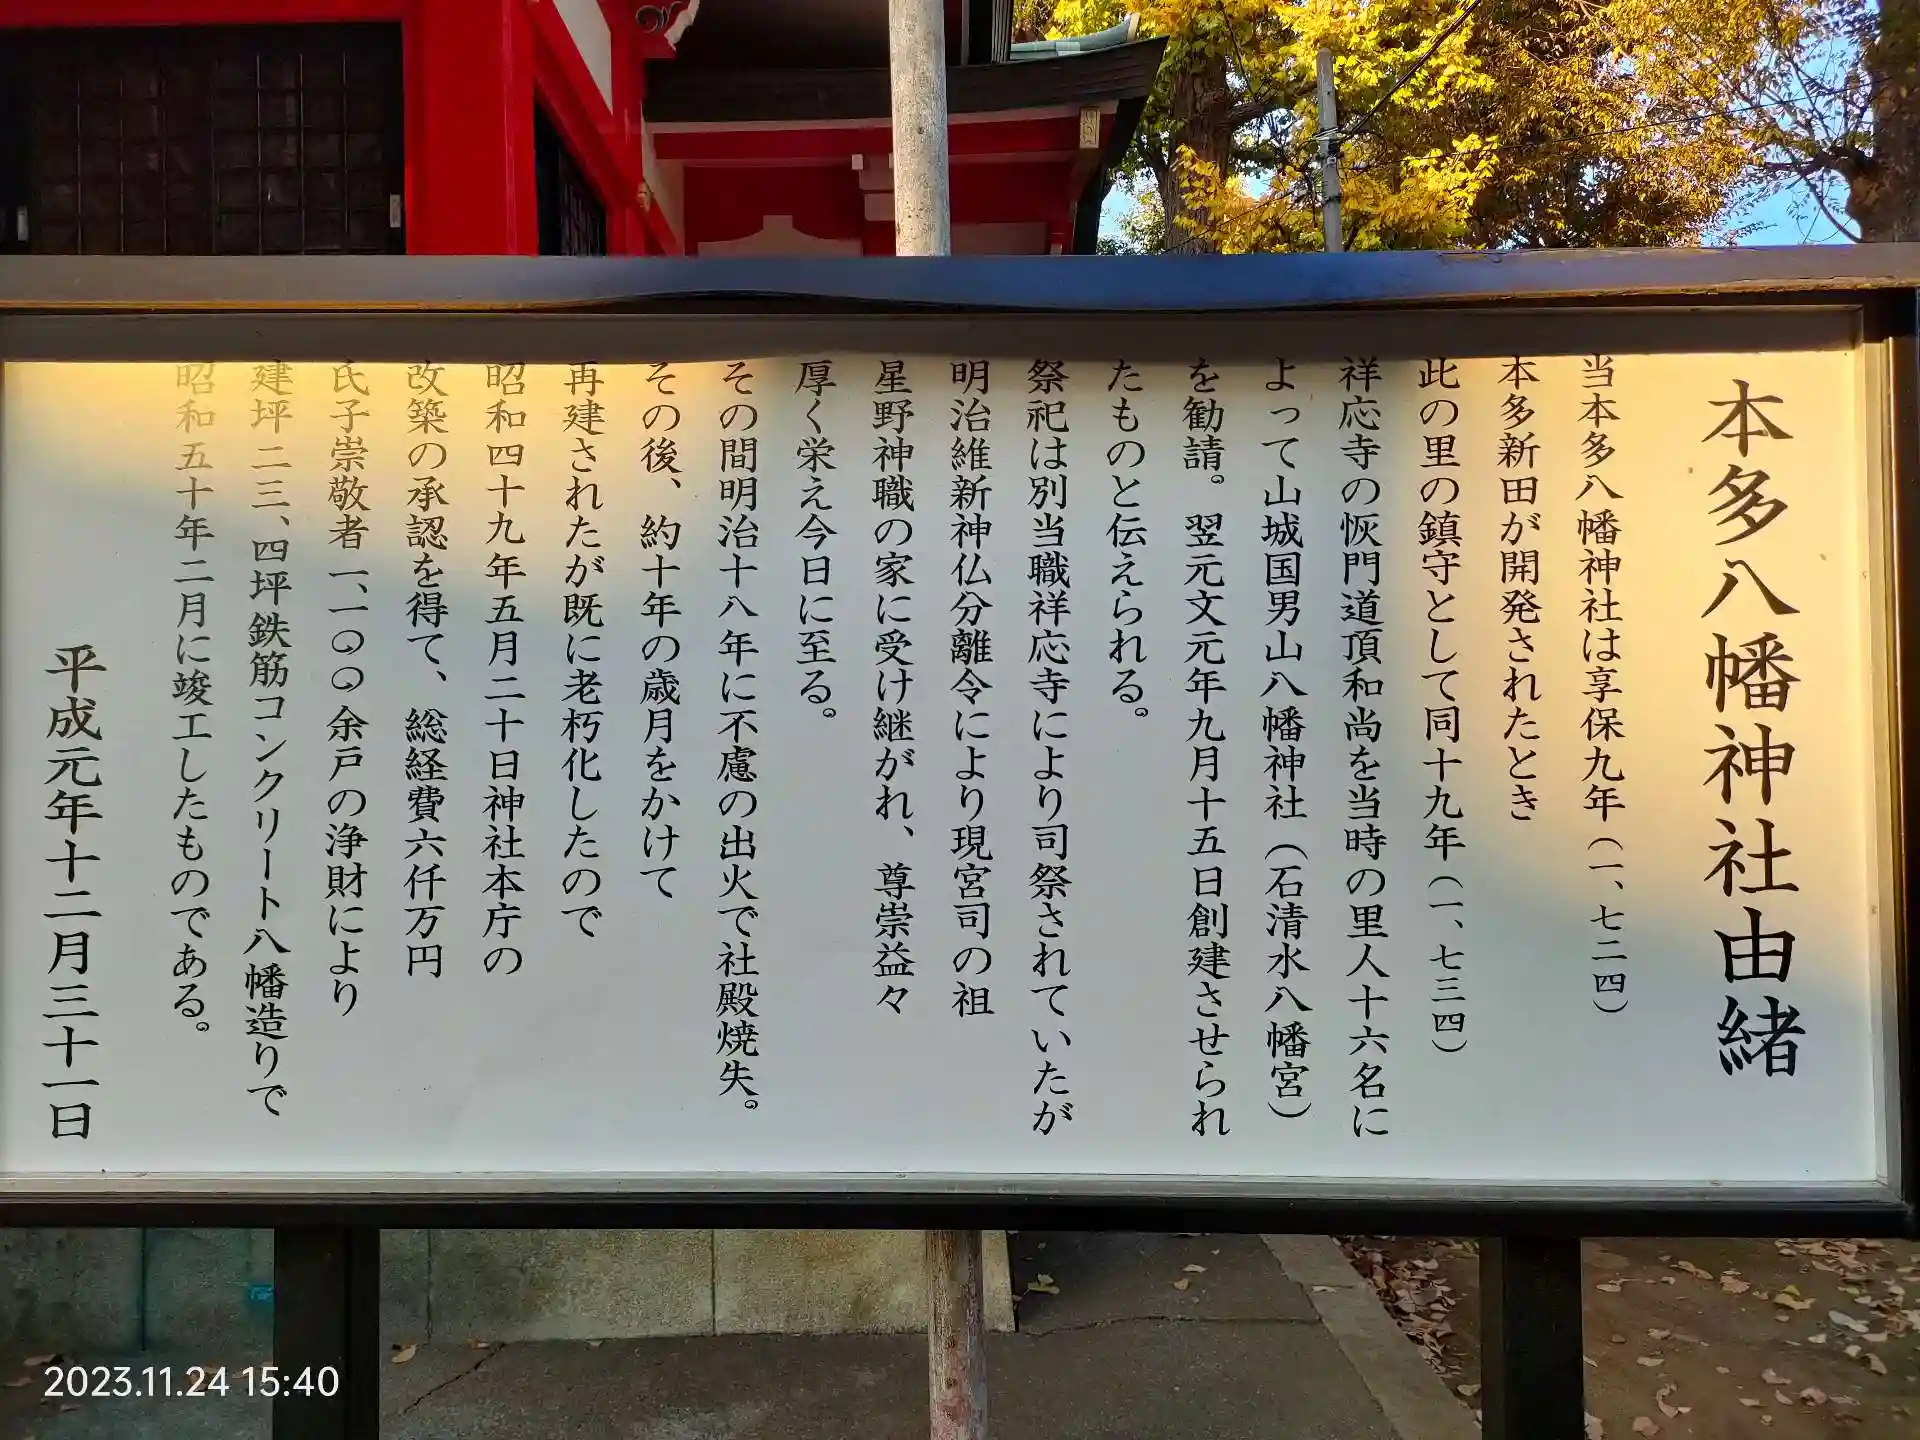 本多八幡神社由緒
当本多八幡神社は享保九年(一、七二四)
本多新田が開発されたとき
此の里の鎮守として同十九年(一、七三四)
祥応寺の恢門道頂和尚を当時の里人十六名に
よって山城国男山八幡神社(石清水八幡宮)
を勧請。翌元文元年九月十五日創建させられ
たものと伝えられる。
祭祀は別当職祥応寺により司祭されていたが
明治維新神仏分離令により現宮司の祖
星野神職の家に受け継がれ、尊崇益々
厚く栄え今日に至る。
その間明治十八年に不慮の出火で社殿焼失。
その後、約十年の歳月をかけて
再建されたが既に老朽化したので
昭和四十九年五月二十日神社本庁の
改築の承認を得て、総経費六仟万円
氏子崇敬者一、一〇〇余戸の浄財により
建坪二三、四坪鉄筋コンクリート八幡造りで
昭和五十年二月に竣工したものである。
平成元年十二月三十一日
2023.11.24 15:40